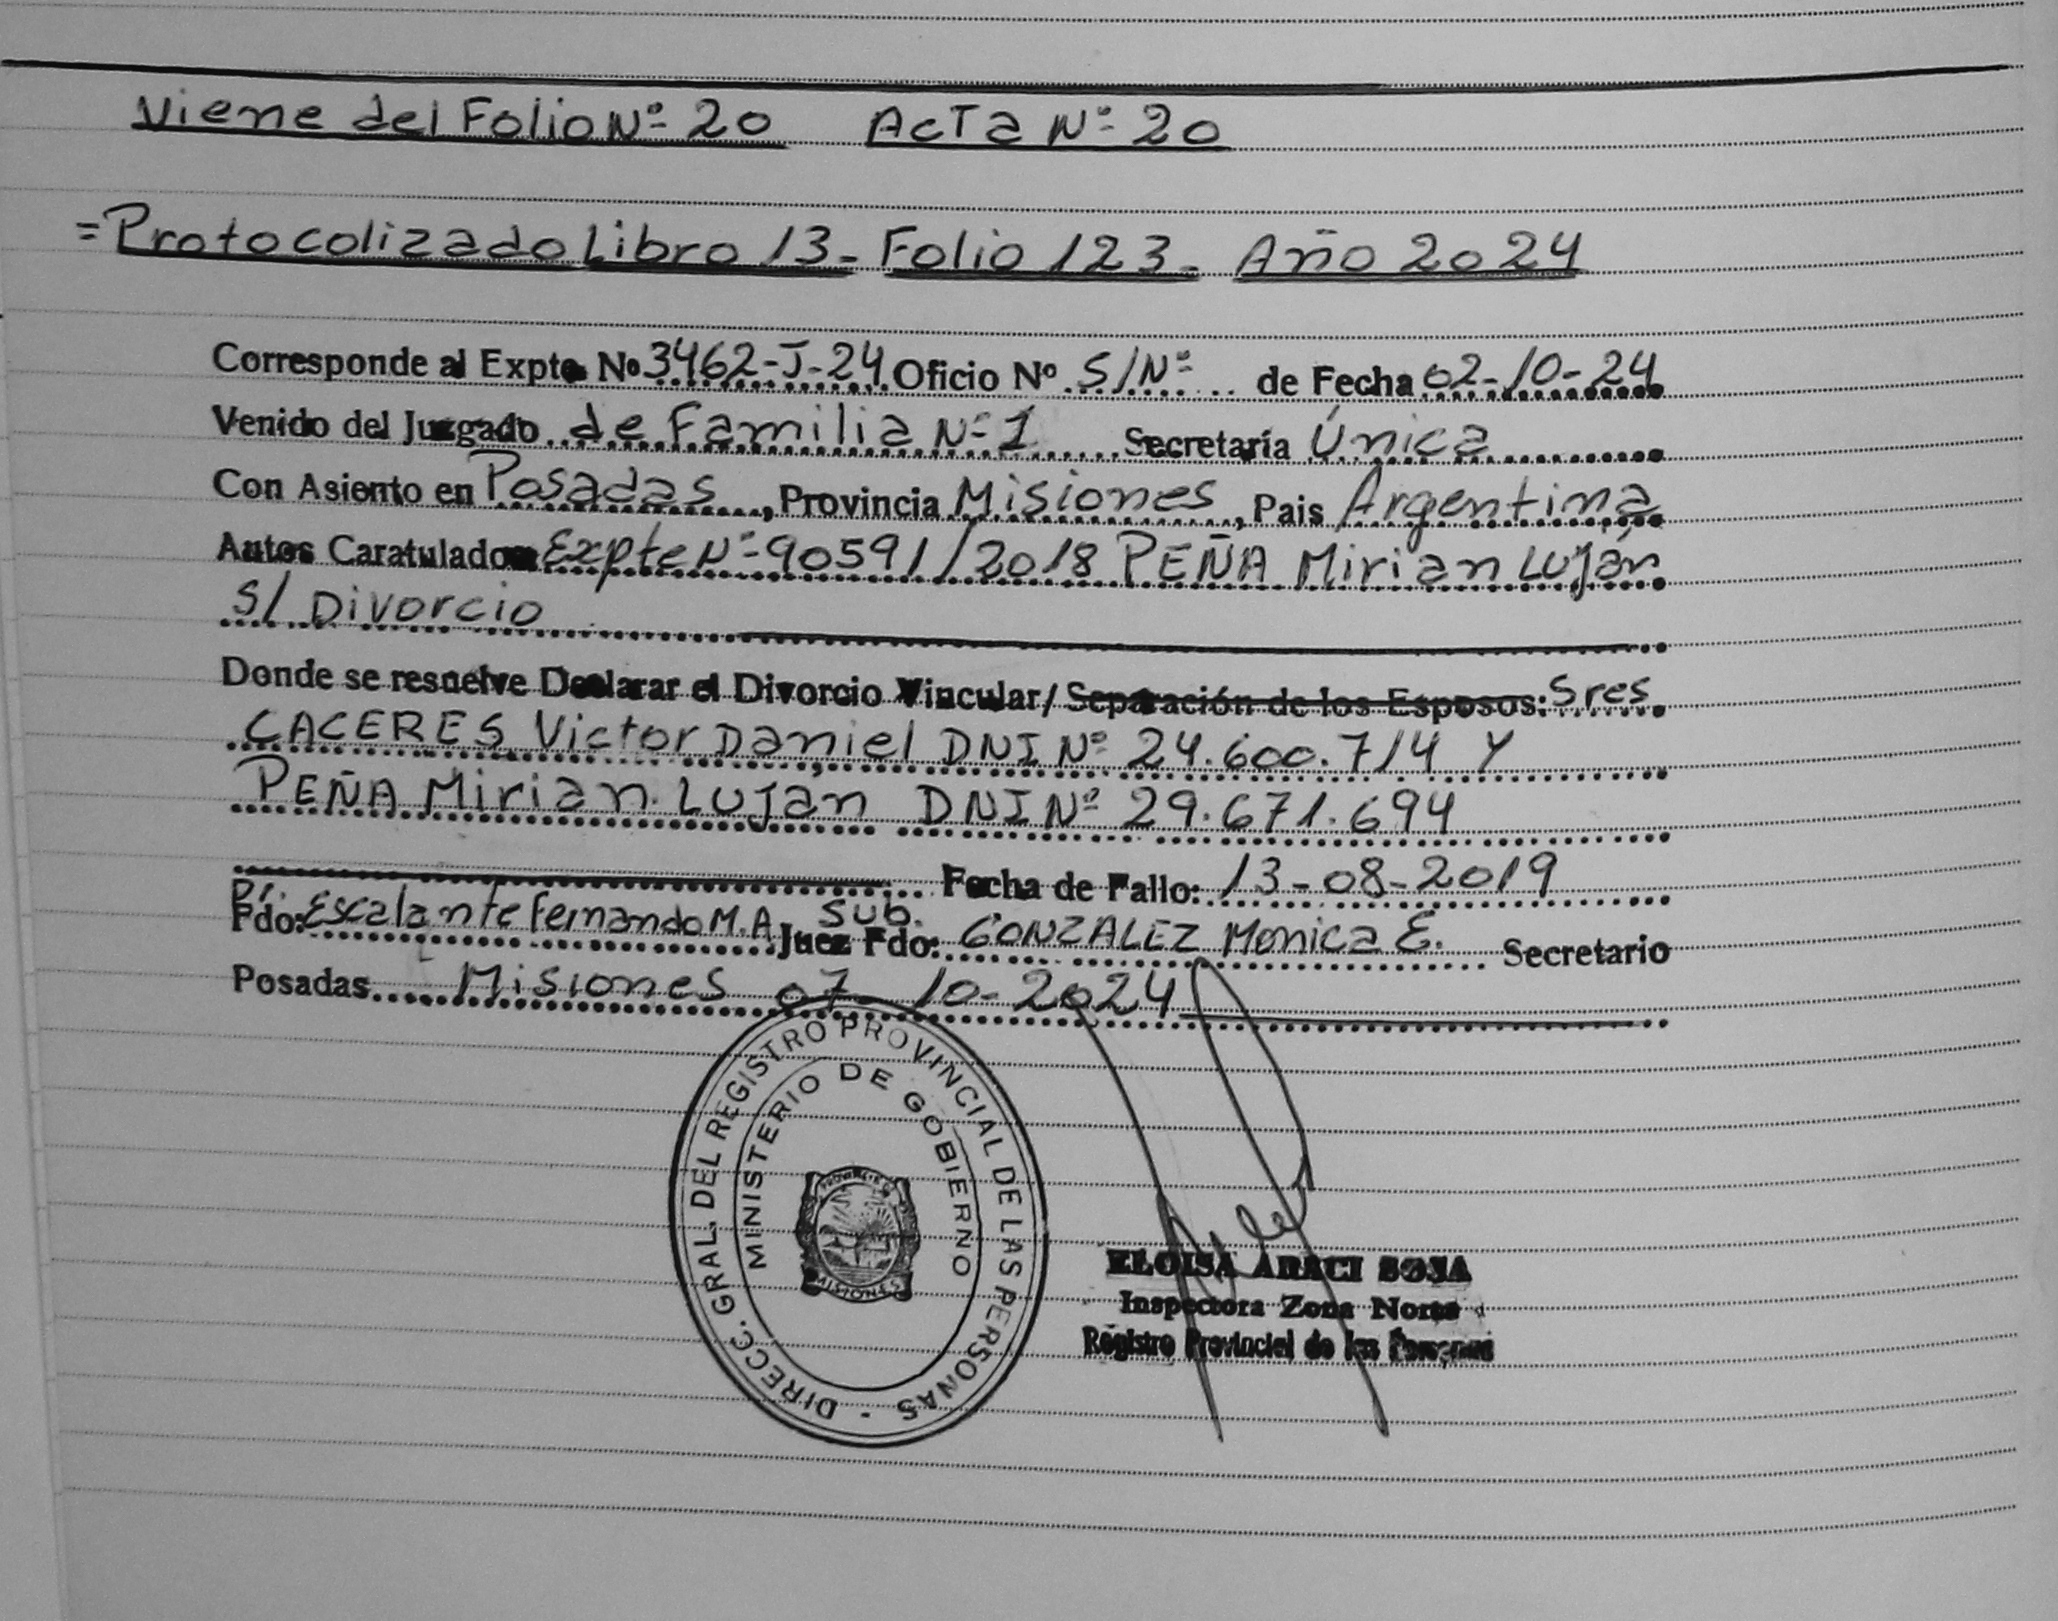 Viene del Folio Nº 20 Acta Nº 20
= Protocolizado Libro 13 - Folio 123 - Año 2024
Corresponde al Expte Nº 3462-J-24 Oficio Nº S/Nº de Fecha 02-10-24
Venido del Juzgado de Familia Nº 1 Secretaría Única
Con Asiento en Posadas, Provincia Misiones, Pais Argentina
Autos Caratulados Expte Nº 90591/2018 PEÑA Mirian Luján
S/ Divorcio
Donde se resuelve Declarar el Divorcio Vincular/ Separación de los Esposos: Sres
CACERES Victor Daniel DNI Nº 24.600.714 Y
PEÑA Mirian Luján DNI Nº 29.671.694
Fecha de Fallo: 13-08-2019
Fdo: Escalante Fernando M.A. Juez Sub. Fdo: GONZALEZ Monica E. Secretario
Posadas Misiones 07-10-2024
DIRECC. GRAL. DEL REGISTRO PROVINCIAL DE LAS PERSONAS -
MINISTERIO DE GOBIERNO
MISIONES
ELOISA ARACI SOSA
Inspectora Zona Norte
Registro Provincial de las Personas